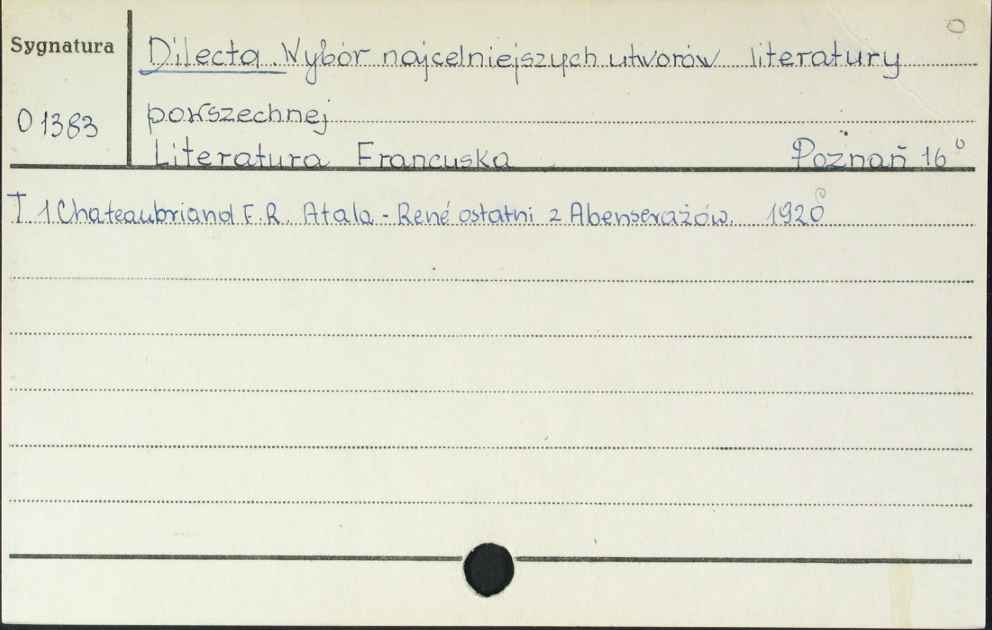 Sygnatura
O 1383
Dilecta. Wybór najcelniejszych utworów literatury
powszechnej
Literatura Francuska Poznań 16°
T. 1 Chateaubriand F. R. Atala - René ostatni z Abenserażów. 1920